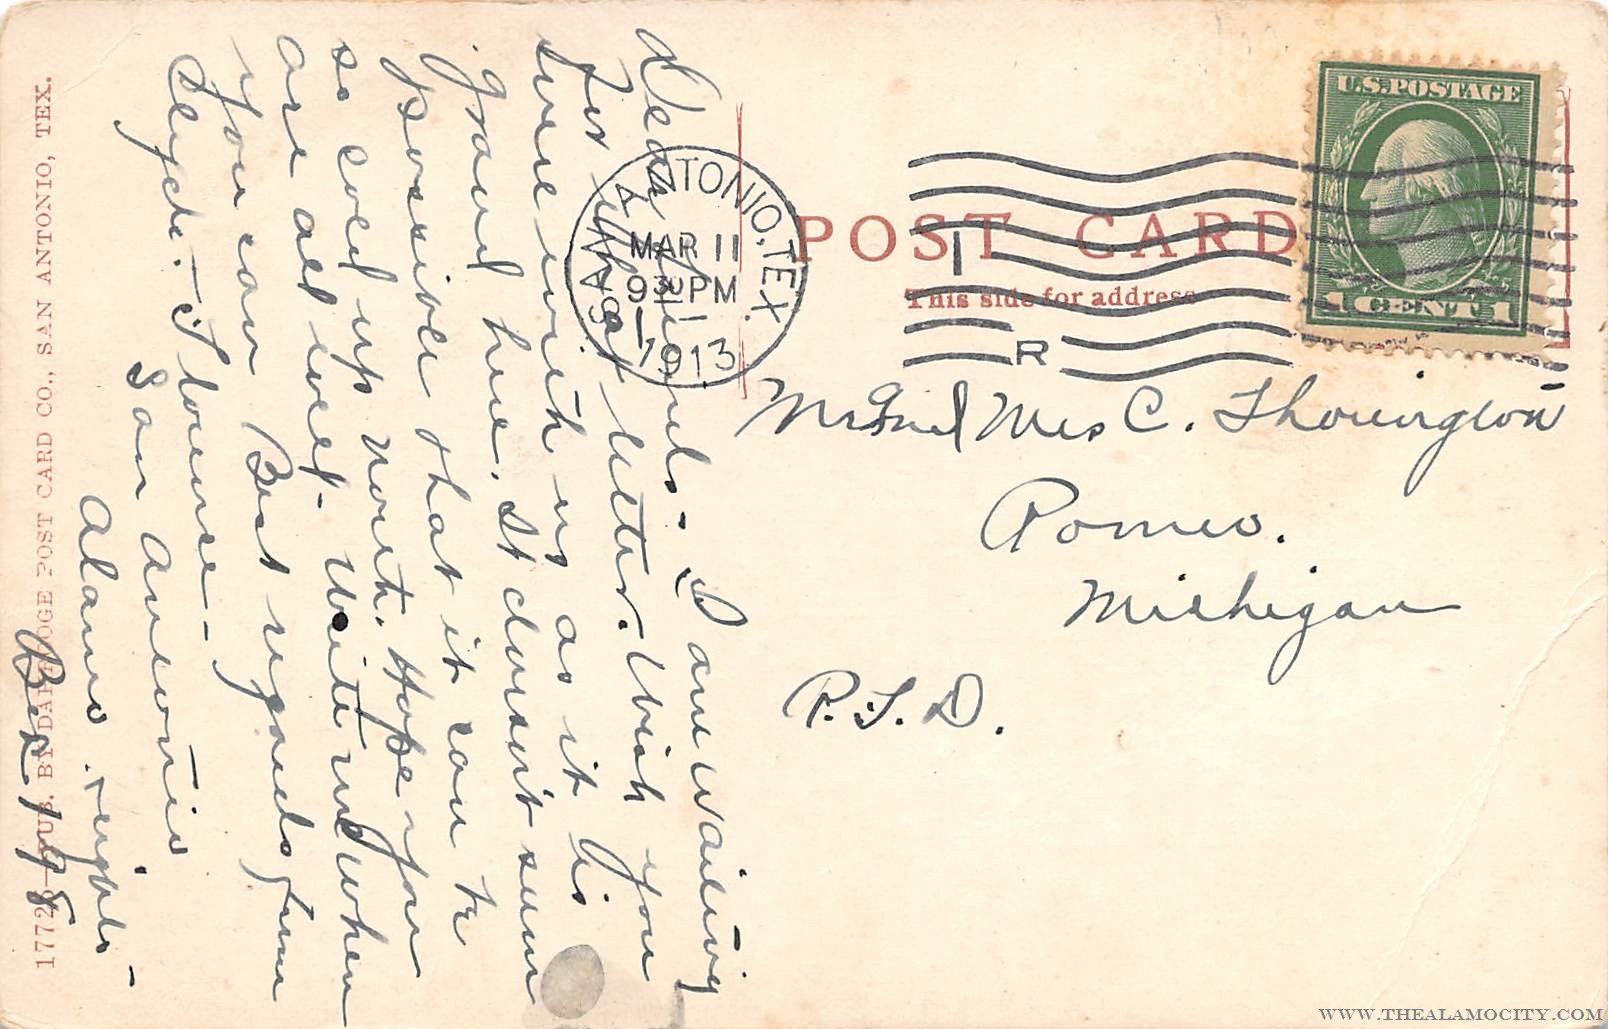 POST CARD
This side for address
U.S. POSTAGE
1 CENT 1
SAN ANTONIO, TEX.
MAR 11
9 30 PM
1913
1
R
Mr and Mrs C. Thorington
Romeo.
Michigan
R.F.D.
Dear Friends. I am waiting
for that letter. Wish you
were with us as it is
grand here. It dousn't seem
possible that it can be
so cold up north. Hope you
are all well. Write me when
you can Best regards from
Clyde. - Florence -
San Antonio
Alamo Heights -
Box 198
17728—PUB. BY DAL HOGE POST CARD CO., SAN ANTONIO, TEX.
WWW.THEALAMOCITY.COM